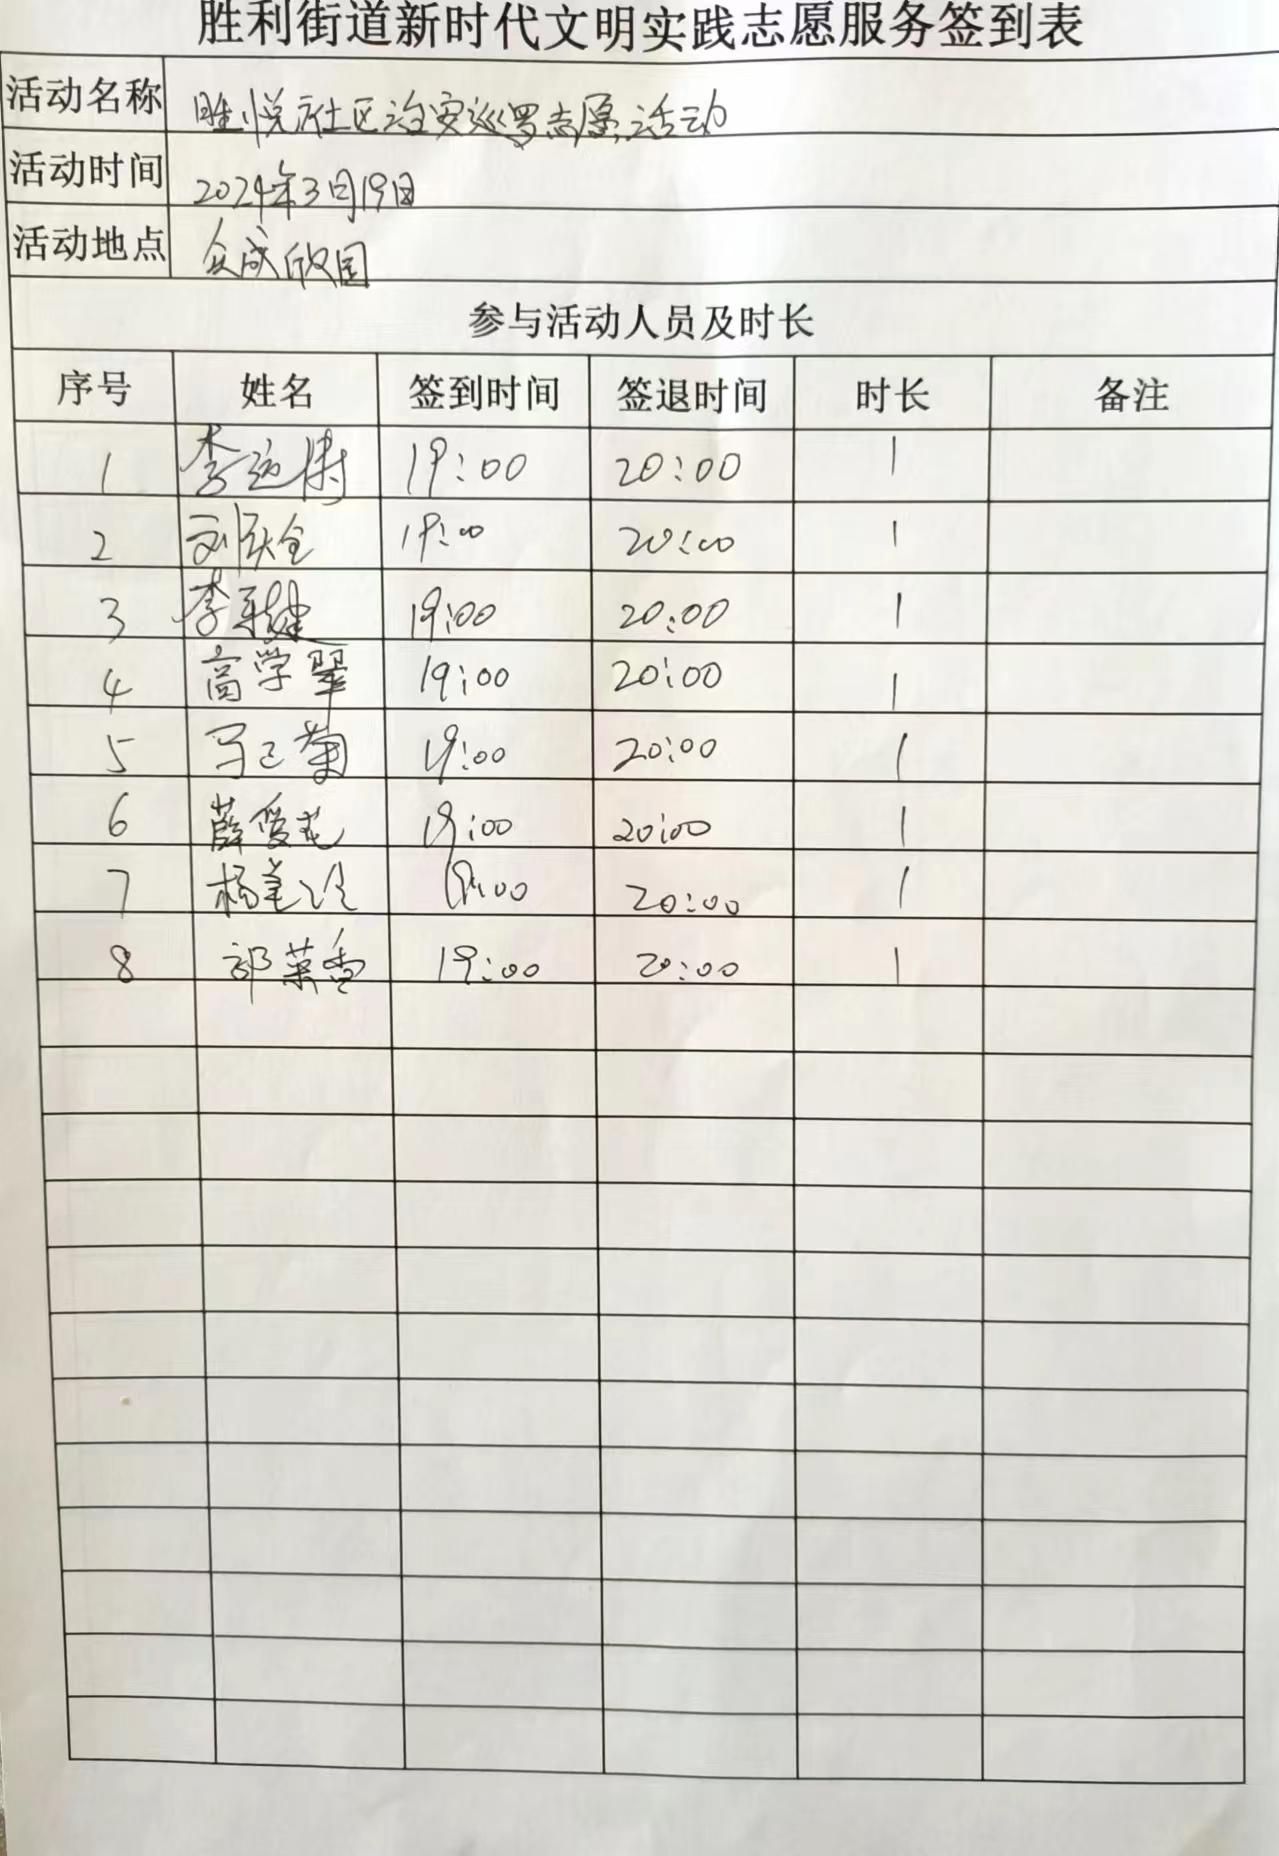 胜利街道新时代文明实践志愿服务签到表
活动名称 胜悦社区治安巡逻志愿活动
活动时间 2024年3月19日
活动地点 众成欣园
参与活动人员及时长
序号 姓名 签到时间 签退时间 时长 备注
1 李 19:00 20:00 1
2 刘庆全 19:00 20:00 1
3 李 19:00 20:00 1
4 高学翠 19:00 20:00 1
5 马 菊 19:00 20:00 1
6 薛爱花 19:00 20:00 1
7 杨 19:00 20:00 1
8 郭菜香 19:00 20:00 1